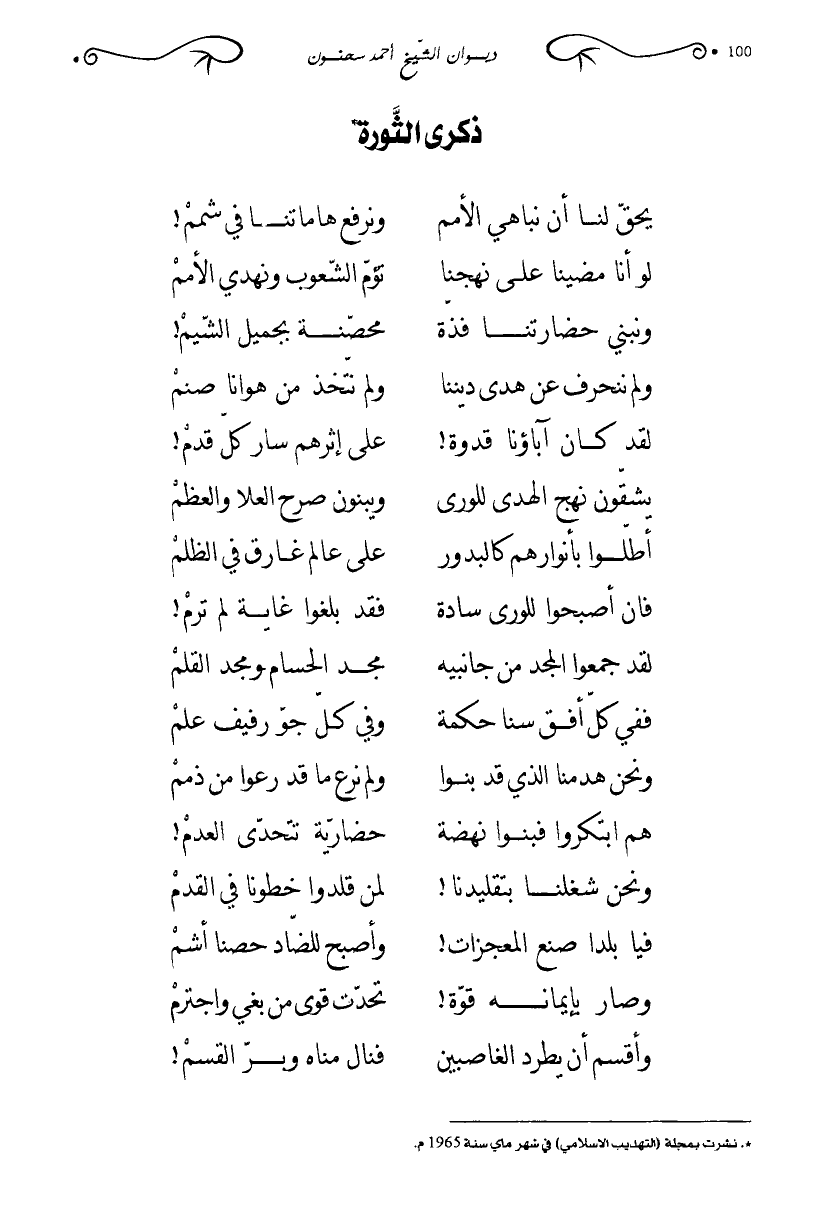 100 ديــوان الشّيخ أحمد سحنــون
ذكرى الثَّورة*
يحقّ لنــا أن نباهي الأمم ونرفع هاماتنــا في شممْ!
لو أنا مضينا علـى نهجنا نؤمّ الشّعوب ونهدي الأممْ
ونبني حضارتنــا فذّة محصّنــة بجميل الشّيمْ!
ولم ننحرف عن هدى ديننا ولم نتّخذ من هوانا صنمْ
لقد كــان آباؤنا قدوة! على إثرهم سار كلّ قدمْ!
يشقّون نهج الهدى للورى ويبنون صرح العلا والعظمْ
أطلّــوا بأنوارهم كالبدور على عالم غــارق في الظلمْ
فان أصبحوا للورى سادة فقد بلغوا غايــة لم ترمْ!
لقد جمعوا المجد من جانبيه مجــد الحسام ومجد القلمْ
ففي كلّ أفــق سنا حكمة وفي كــلّ جوّ رفيف علمْ
ونحن هدمنا الذي قد بنــوا ولم نرع ما قد رعوا من ذممْ
هم ابتكروا فبنــوا نهضة حضاريّة تتحدّى العدمْ!
ونحن شغلنــا بتقليدنا ! لمن قلدوا خطونا في القدمْ
فيا بلدا صنع المعجزات! وأصبح للضّاد حصنا أشمْ
وصار بإيمانــه قوّة! تحدّت قوى من بغي واجترمْ
وأقسم أن يطرد الغاصبين فنال مناه وبــرّ القسمْ!
*. نشرت بمجلة (التهذيب الاسلامي) في شهر ماي سنة 1965 م.